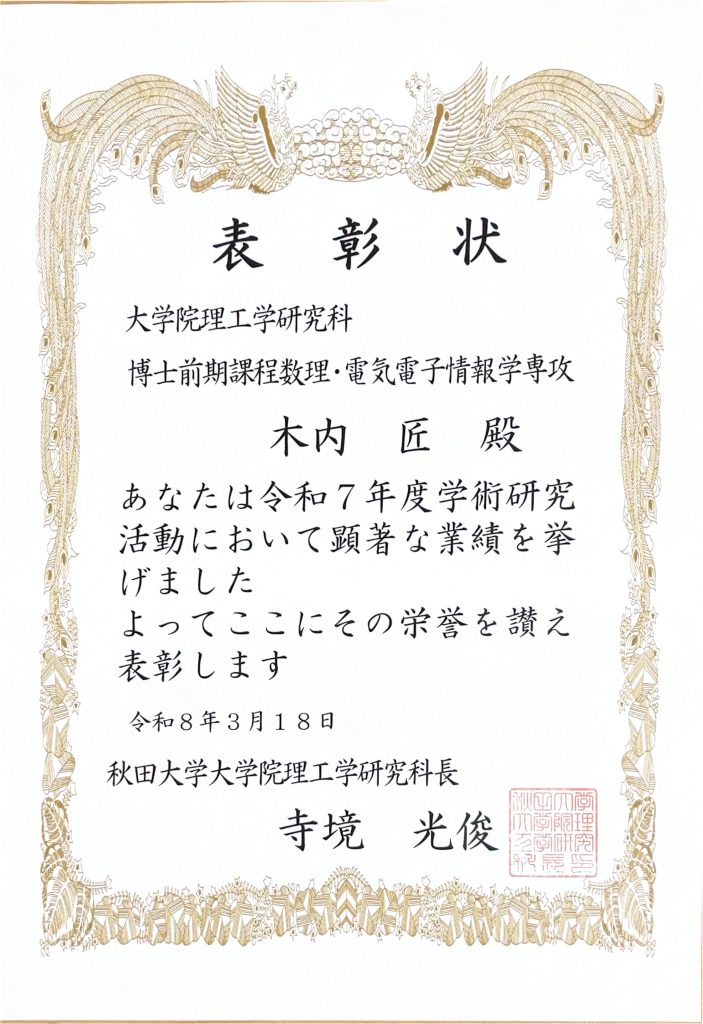 表彰状
大学院理工学研究科
博士前期課程数理・電気電子情報学専攻
木内 匠 殿
あなたは令和７年度学術研究
活動において顕著な業績を挙
げました
よってここにその栄誉を讃え
表彰します
令和８年３月１８日
秋田大学大学院理工学研究科長
寺境 光俊